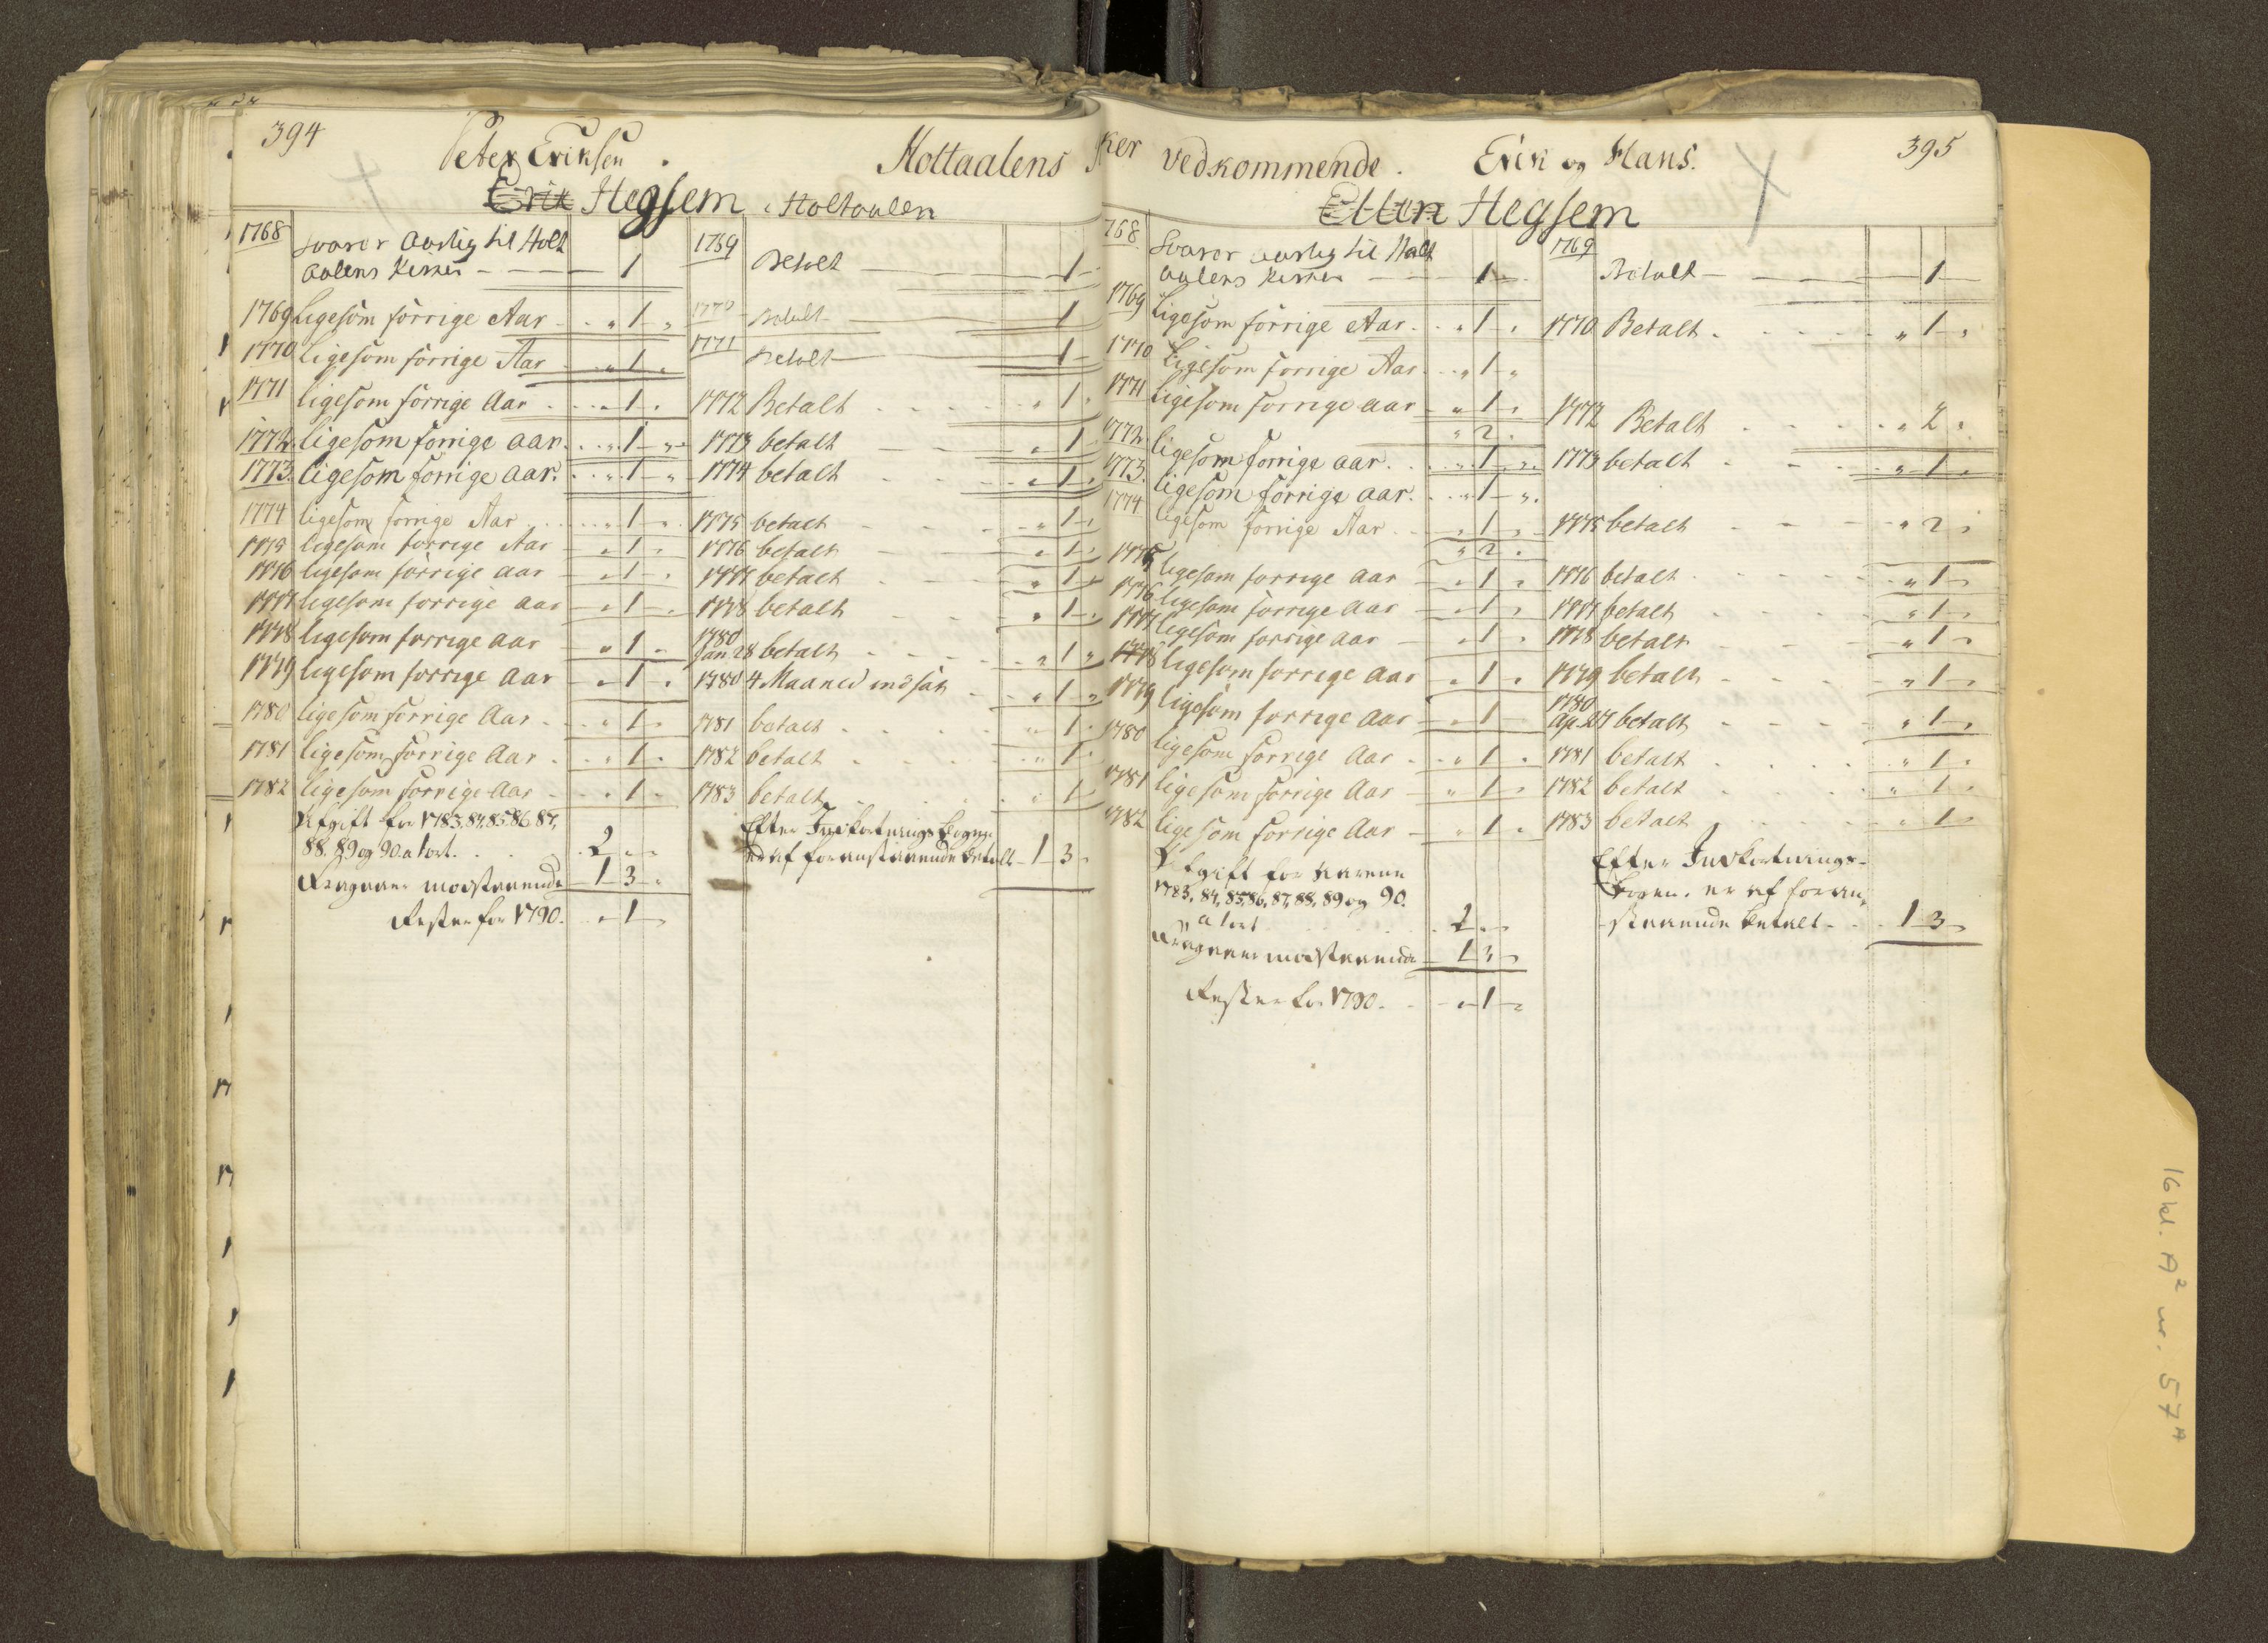 394
Peter Eriksen.
Holtaalens
Erik Hegsem i Holtaalen
1768 Svarer Aarlig til Holt
aalens Kirker - - - 1
1769 Betalt - - 1
1769 ligesom forrige Aar - . „ 1 „
1770 Betalt - 1
1770 ligesom forrige Aar - „ 1 „
1771 Betalt - 1
1771 ligesom forrige Aar . . . „ 1 .
1772 Betalt . . . . . „ 1 .
1772. ligesom forrige aar. . . „ 1 „
1773 betalt - - „ 1
1773. ligesom forrige aar. . . „ 1 „
1774 betalt - - - „ 1
1774 ligesom forrige Aar . . . . „ 1 „
1775 betalt - - - „ 1
1775 ligesom forrige Aar - „ 1 „
1776 betalt - - - „ 1
1776 ligesom forrige aar - „ 1 .
1777 betalt - - - „ 1
1777 ligesom forrige aar - „ 1 „
1778 betalt - - „ 1
1778 ligesom forrige aar - „ 1 „
1780
Jan 28 betalt - - - - „ 1 „
1779 ligesom forrige Aar - „ 1 .
1780 4 Maaned indsat - - „ 1 „
1780 ligesom forrige Aar - . „ 1 „
1781 betalt . . . . . „ 1
1781 ligesom forrige Aar . . „ 1 „
1782 betalt . . . . „ 1
1782 ligesom forrige Aar - . „ 1 „
1783 betalt . . . . „ 1
Afgift for 1783, 84, 85, 86, 87,
88, 89 og 90 a 1 ort. . . 2 „ „
Efter Indkortnings Bogen
er af foranstaaende betalt - 1 3 „
Fragaaer modstaaende 1 3 „
Rester for 1790. „ 1 „
395
Kirker vedkommende.
Erik og Hans.
Ellen Hegsem
1768. Svarer aarlig til Holt
aalens Kirker - - 1 -
1769 Betalt - - 1
1769 ligesom forrige Aar. - . „ 1 .
1770 Betalt . - - - - „ 1 „
1770 Ligesom forrige Aar . . „ 1 „
1771 ligesom forrige aar - „ 1 „
„ 2 .
1772 Betalt - - - . „ 2 „
1772. ligesom forrige aar. . . „ 1 „
1773 betalt - - - „ 1 „
1773. ligesom forrige aar. . . „ 1 „
1774 ligesom forrige Aar . . „ 1 „
„ 2 .
1775 betalt - - - „ 2 „
1775 ligesom forrige aar - „ 1 „
1776 betalt . - - - „ 1 „
1776 ligesom forrige aar - „ 1 „
1777 betalt . - - - „ 1 „
1777 ligesom forrige aar - „ 1 .
1778 betalt - - „ 1 „
1778 ligesom forrige aar - „ 1 .
1779 betalt - - - - „ 1 „
1779 ligesom forrige aar - „ 1
1780
Ap. 27 betalt - - - - „ 1 „
1780 ligesom forrige Aar - . „ 1 .
1781 betalt . . . . „ 1 „
1781 ligesom forrige Aar - „ 1 „
1782 betalt . . . . „ 1 „
1782 ligesom forrige Aar - „ 1 .
1783 betalt . . . . „ 1 „
Afgift for Aarene
1783, 84, 85, 86, 87, 88, 89 og 90.
a 1 ort . . . . . 2 „ „
Fragaaer modstaaende 1 3 „
Rester for 1790. - „ 1 „
Efter Indkortnings-
Bogen. er af foran-
staaende betalt - . . 1 3 „
16 kl. A² nr. 57ᴬ